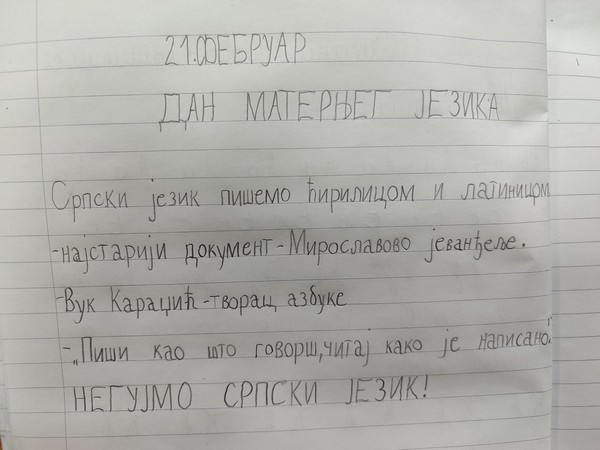 21.ФЕБРУАР
ДАН МАТЕРЊЕГ ЈЕЗИКА
Српски језик пишемо ћирилицом и латиницом
-најстарији документ-Мирославово јеванђеље.
-Вук Караџић-творац азбуке
-„Пиши као што говорш,читај како је написано."
НЕГУЈМО СРПСКИ ЈЕЗИК!